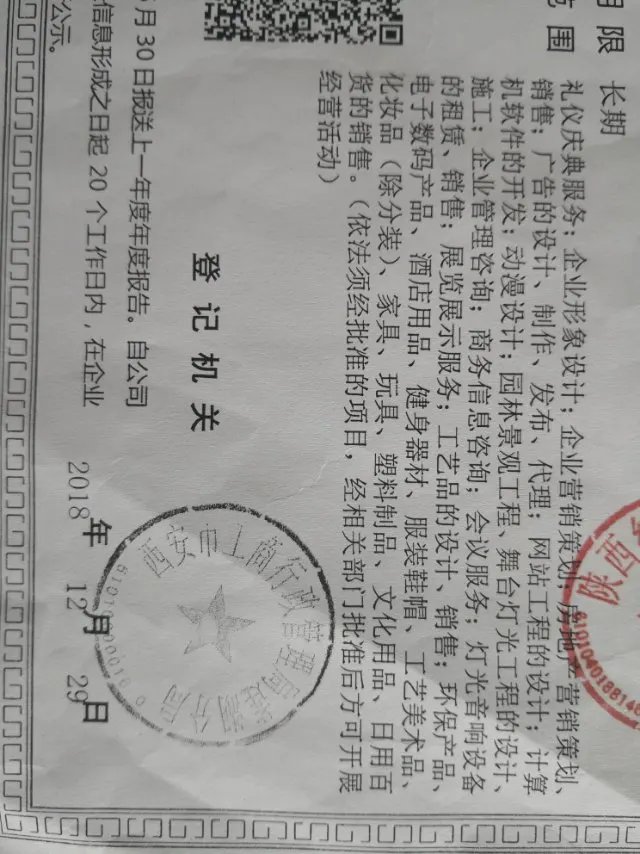 期限 长期
范围 礼仪庆典服务；企业形象设计；企业营销策划；房地产营销策划、
销售；广告的设计、制作、发布、代理；网站工程的设计；计算
机软件的开发；动漫设计；园林景观工程、舞台灯光工程的设计、
施工；企业管理咨询；商务信息咨询；会议服务；灯光音响设备
的租赁、销售；展览展示服务；工艺品的设计、销售；环保产品、
电子数码产品、酒店用品、健身器材、服装鞋帽、工艺美术品、
化妆品（除分装）、家具、玩具、塑料制品、文化用品、日用百
货的销售。（依法须经批准的项目，经相关部门批准后方可开展
经营活动）
陕西
登记机关
西安市工商行政管理局莲湖分局
2018年 12月 29日
月30日报送上一年度年度报告。自公司
信息形成之日起 20 个工作日内，在企业
公示。